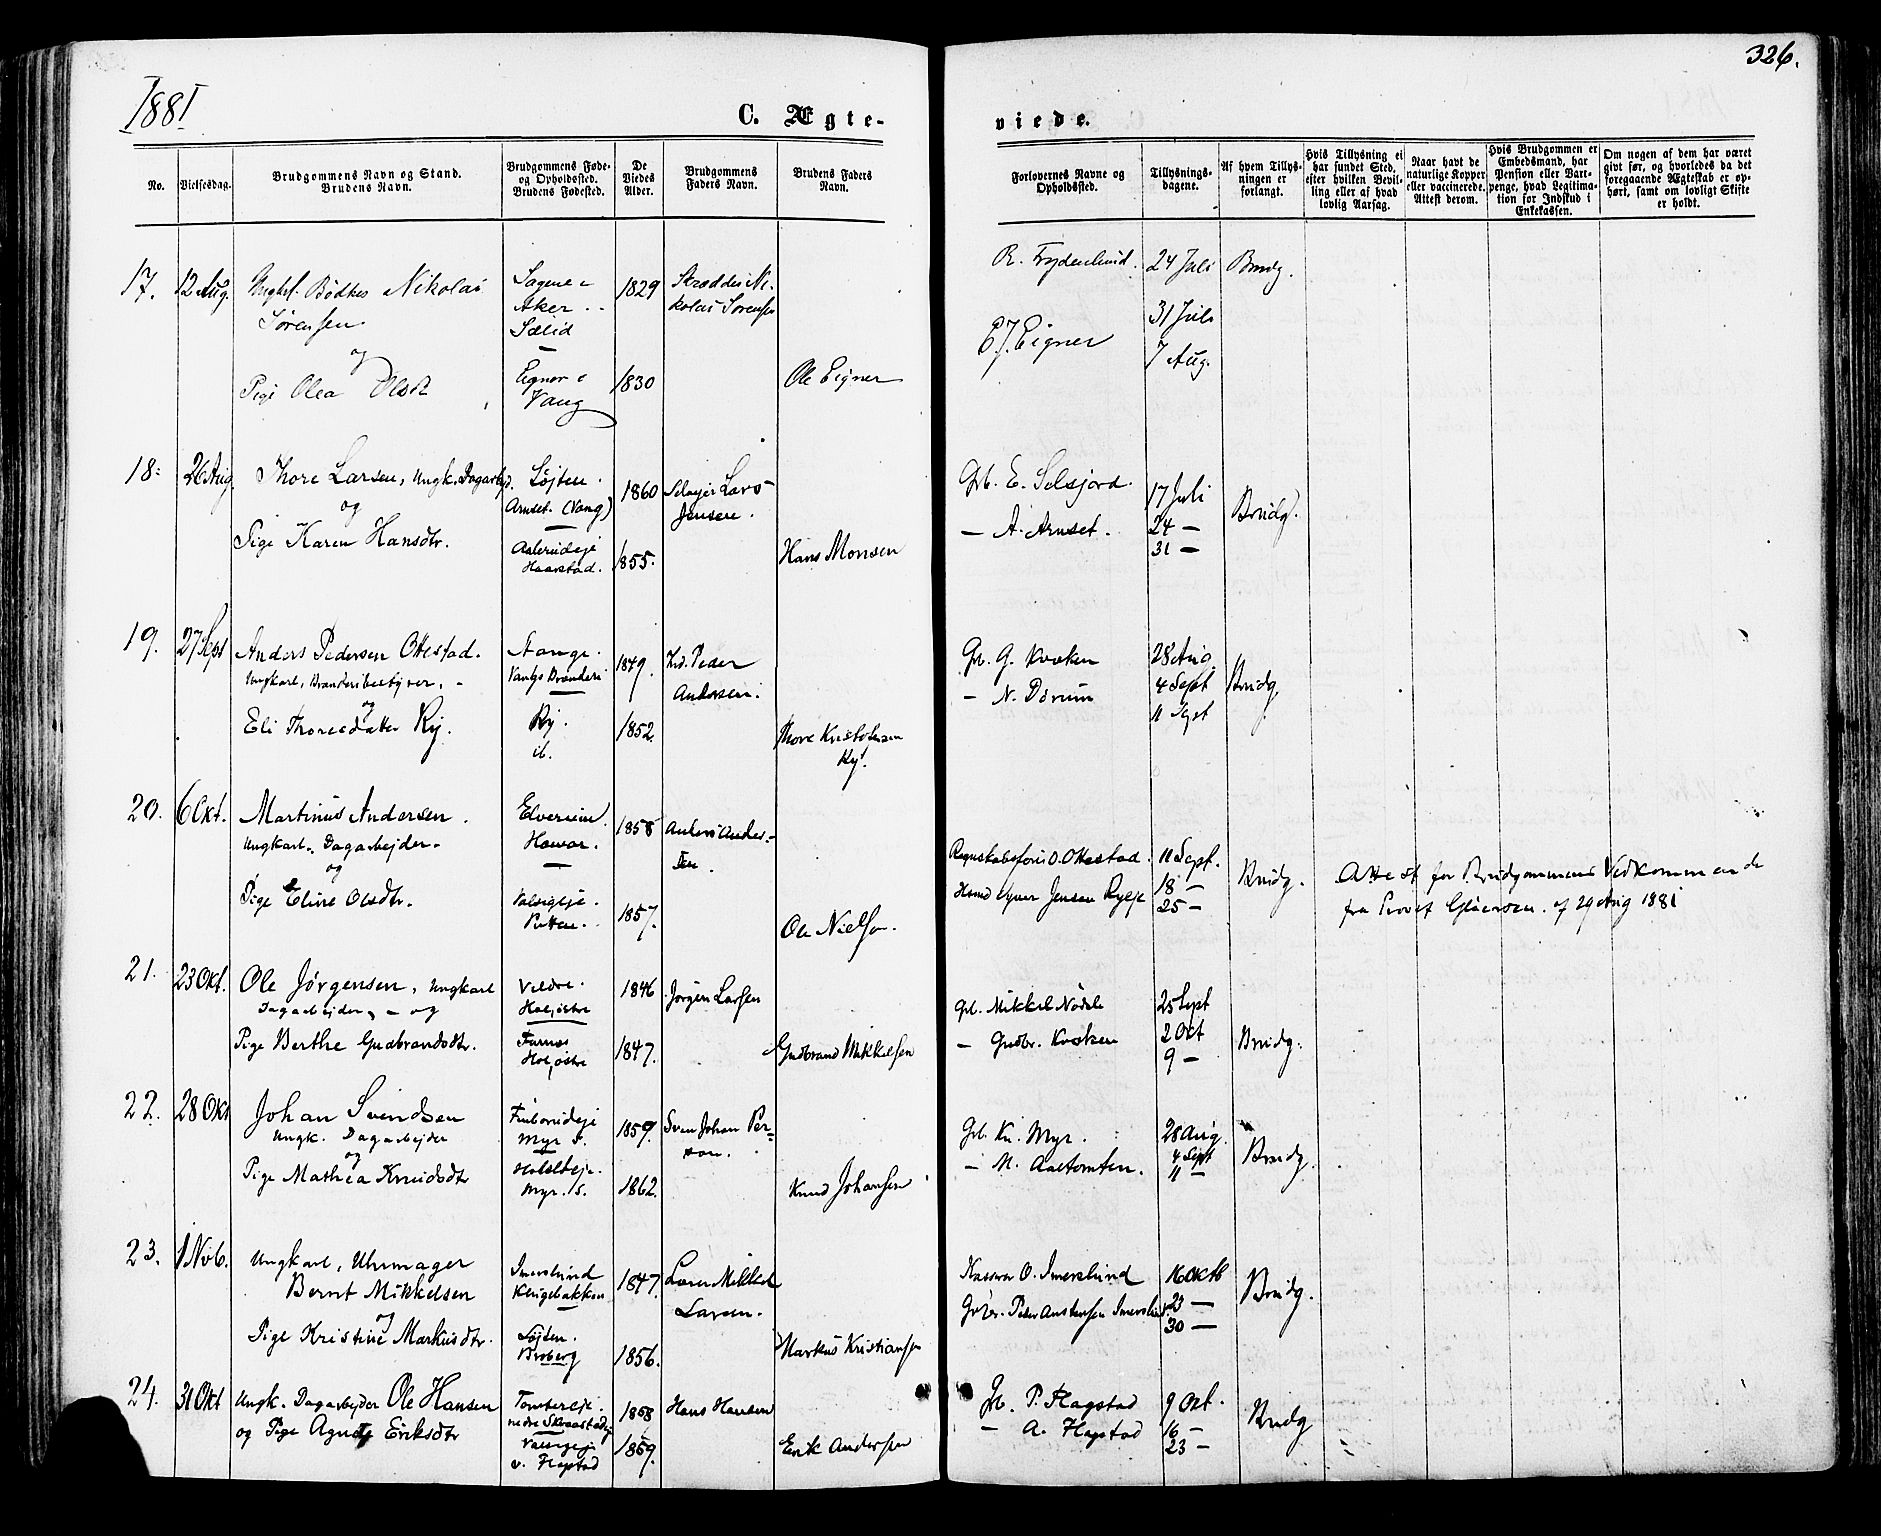 1881
C. Ægte-
No.
Vielsesdag.
Brudgommens Navn og Stand.
Brudens Navn.
Brudgommens Føde-
og Opholdssted.
Brudens Fødested.
De
Viedes
Alder.
Brudgommens
Faders Navn.
Brudens Faders
Navn.
17. 12 Aug. Ungkl. Bødker Nikolai
Sørensen
og
Pige Olea Olsdt
Sagene i
Aker
Sælid
Eigner i
Vang
1829
1830
Skrædder Ni-
kolai Sørensen
Ole Eigner
18. 26 Aug. Thore Larsen, Ungk. Dagarbejd.
og
Pige Karen Hansdtr.
Løjten.
Arnset. (Vang)
Haarstad.
1860
1855.
Selvejer Lars
Jensen.
Hans Monsen
19. 27 Sept Anders Pedersen Ottestad.
Ungkarl, Brænderibestyrer.
og
Eli Thoresdatter Ry.
Stange.
Vangs Brænderi
Ry.
ib.
1849.
1852.
Peder
Andersen.
Thore Kristofersen
Ry.
20. 6 Okt. Martinus Andersen.
Ungkarl. Dagarbejder.
og
Pige Eline Olsdtr.
Elverum.
Hamar.
1858
1857.
Anders Ander-
sen.
Ole Nielsen.
21. 23 Okt. Ole Jørgensen, Ungkarl
Dagarbejder, og
Pige Berthe Gudbrandsdtr.
Veldre.
Furnes
1846
1847.
Jørgen Larsen
Gudbrand Mikkelsen
22. 28 Okt Johan Svendsen
Ungk. Dagarbejder
og
Pige Mathea Knudsdtr
Myr
Myr.
1859.
1862.
Sven Johan Per-
son.
Knud Johansen
23. 1 Nob. Ungkarl, Uhrmager
Bernt Mikkelsen
og
Pige Kristine Markusdtr.
Imerslund
Klugebakken
Løjten.
Broberg
1847
1856.
Mikkel
Larsen.
Markus Kristiansen
24. 31 Okt Ungk. Dagarbejder Ole Hansen
og Pige Agnete Eriksdtr
v. Flagstad
1858
1859.
Hans Hansen
Erik Andersen
326.
viede.
Forlovernes Navne og
Opholdssted.
Tillysnings-
dagene.
Af hvem Tillys-
ningen er
forlangt.
Hvis Tillysning ei
har fundet Sted,
efter hvilken Bevil-
ling eller af hvad
lovlig Aarsag.
Naar havt de
naturlige Kopper
eller vaccinerede.
Attest derom.
Hvis Brudgommen er
Embedsmand, har
Pension eller Vart-
penge, hvad Legitima-
tion for Indskud i
Enkekassen.
Om nogen af dem har været
givt før, og hvorledes da det
foregaaende Ægteskab er op-
hørt, samt om lovligt Skifte
er holdt.
R. Frydenlund. 24 Juli Brudg.
31 Juli
E. J. Eigner
7 Aug.
Grb. E. Selsjord.
— A. Arnset.
17 Juli
24 —
31 —
Brudg.
Gb. G. Kvæken
— N. Dørum
28 Aug.
4 Sept
11 Sept
Brudg.
Regnskabsfører O. Ottestad.
11 Sept.
18 —
25 —
Brudg.
Attest for Brudgommens Vedkommende
fra Provst Gløersen. af 29 Aug 1881
Gb. Mikkel
— Gudbr. Kvæken
25 Sept
2 Oct
9 —
Brudg.
Gb. Kn. Myr.
— M. Aastomten.
28 Aug.
4 Sept
11 —
Brudg.
Kasserer O. Imerslund
Peder Amundsen Imerslund
16 Oktb
23 —
30 —
Brudg.
Gb. P. Flagstad
— A. Flagstad
9 Oct.
16 —
23 —
Brudg